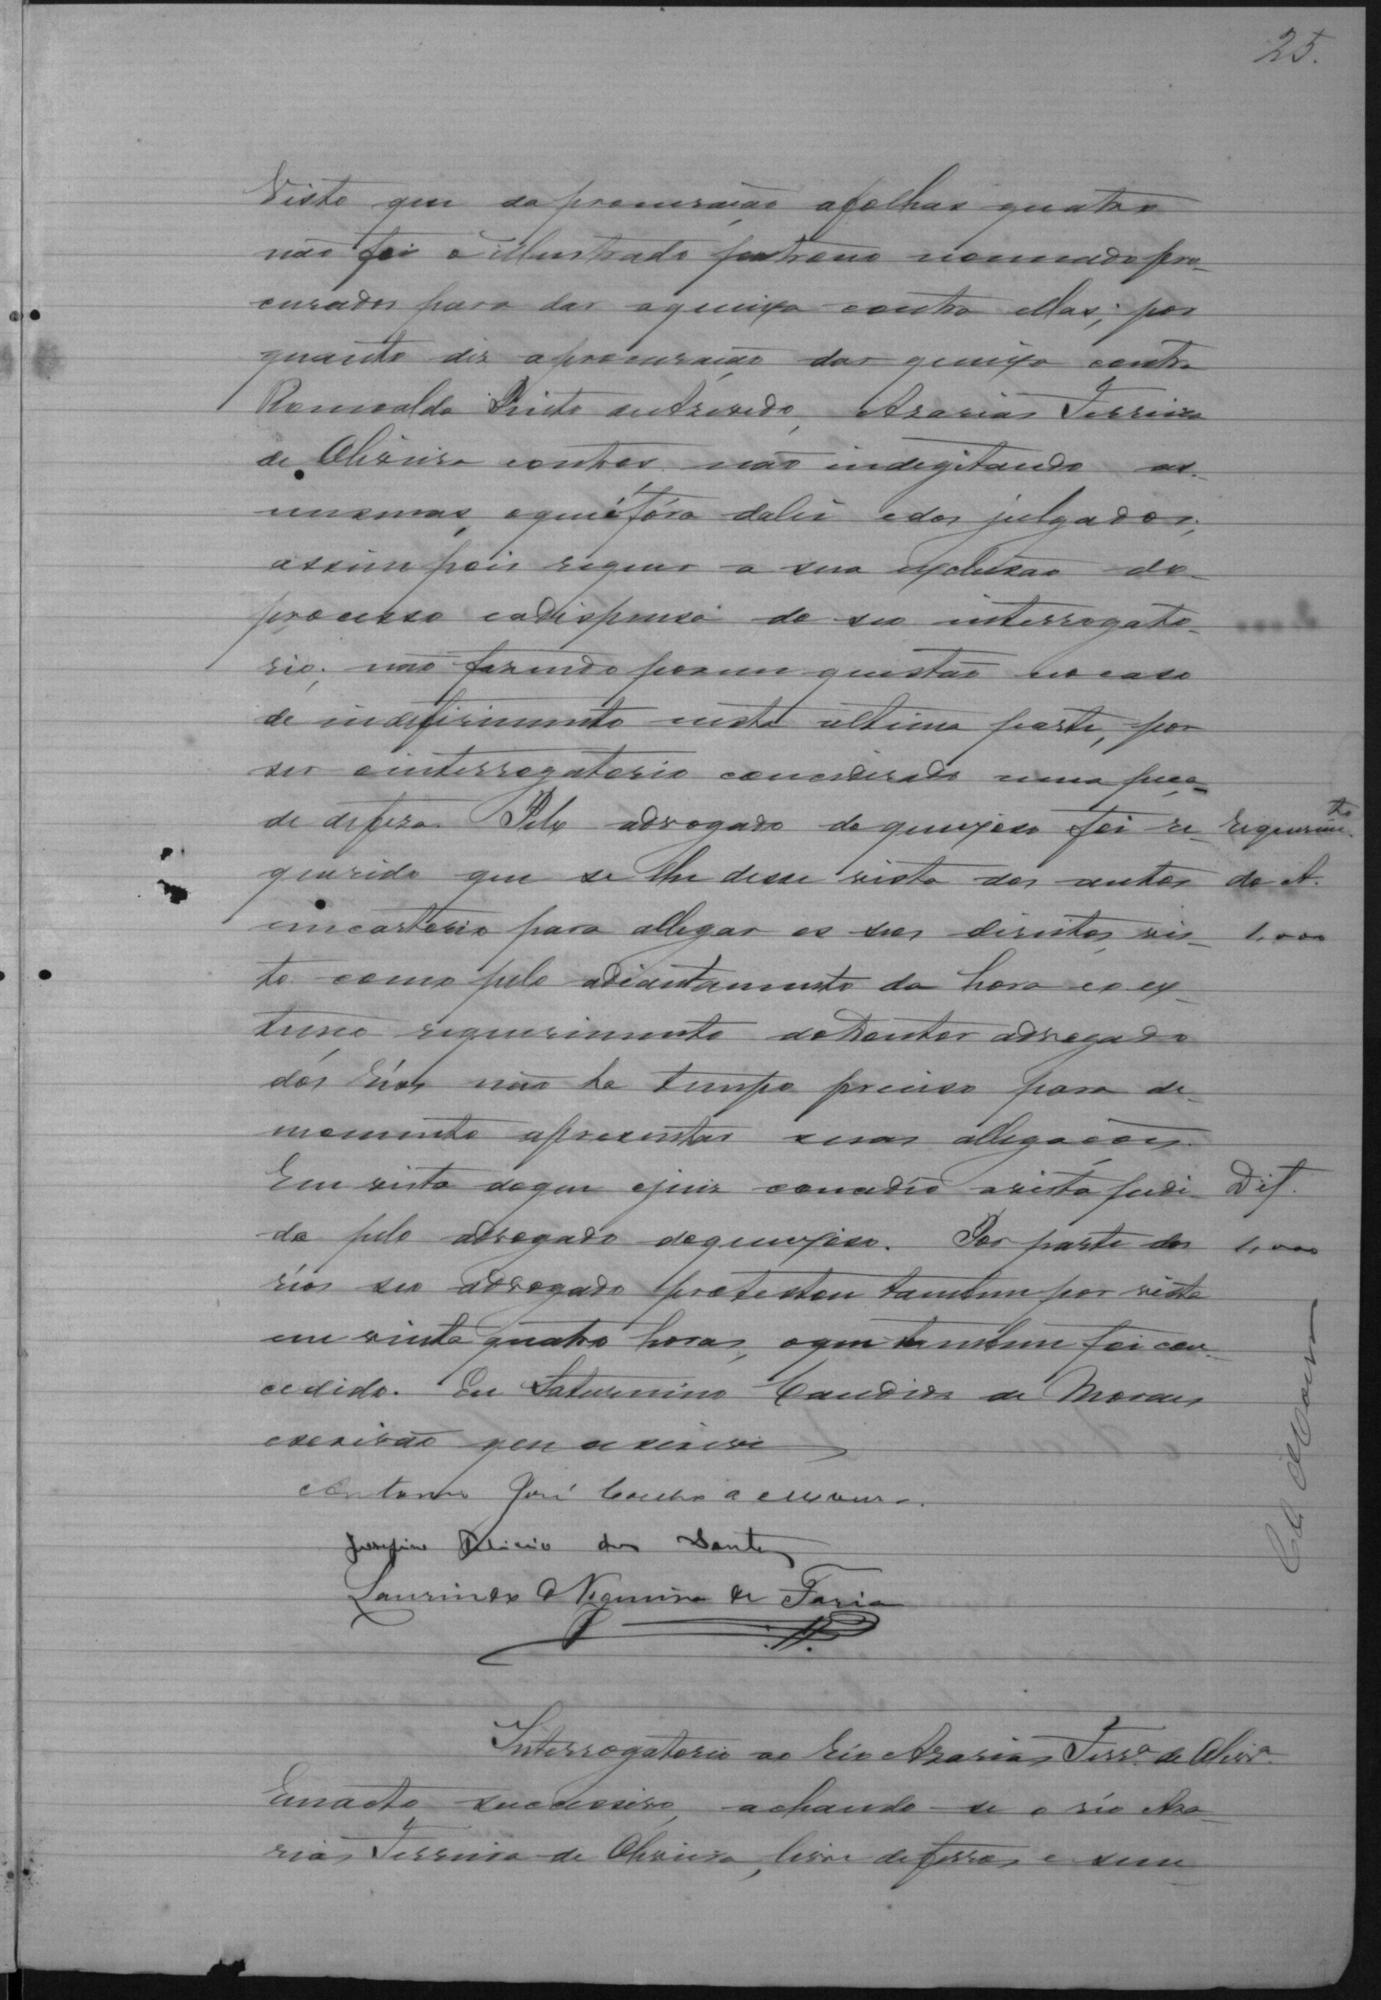 25.
Visto que da procuração a folhas quatro
não foi o illustrado patrono nomeado pro-
curador para dar a queixa contra ellas; por
quanto diz a procuração dar queixa contra
Romualdo Pinto de Azevedo, Azarias Ferreira
de Oliveira e outros não indegitando as
mesmas, o que é fóra da lei e dos julgados;
assim pois requer a sua exclusão do
processo e a dispensa do seu interrogato-
rio; não fazendo porem questão no caso
de indeferimento nesta ultima parte, por
ser o interrogatorio considerado uma peça
de defeza. Pelo advogado do queixoso foi re-
querido que se lhe desse vista dos autos
em cartorio para allegar os seos direitos, vis-
to como pelo adiantamento da hora e o ex-
tenso requerimento do Doutor advogado
dos Réos não ha tempo preciso para de
momento apresentar suas allegações.
Em vista do que o juiz concedeo a vista pedi-
da pelo advogado do queixoso. Por parte dos
réos seo advogado protestou tambem por vista
em vinte quatro horas, o que tambem foi con-
cedido. Eu Saturnino Candido de Moraes
escrivão que o escrevi
Requerim.to
do A.
1,000
Def.
1,000
Antonio José
Josefino Felicio dos Santos
Laurindo Nequina de Faria
C. de Moraes
Interrogatorio ao Réo Azarias Ferr.a de Olivr.a
Em acto successivo, achando-se o réo Aza-
rias Ferreira de Oliveira, livre de ferros e sem